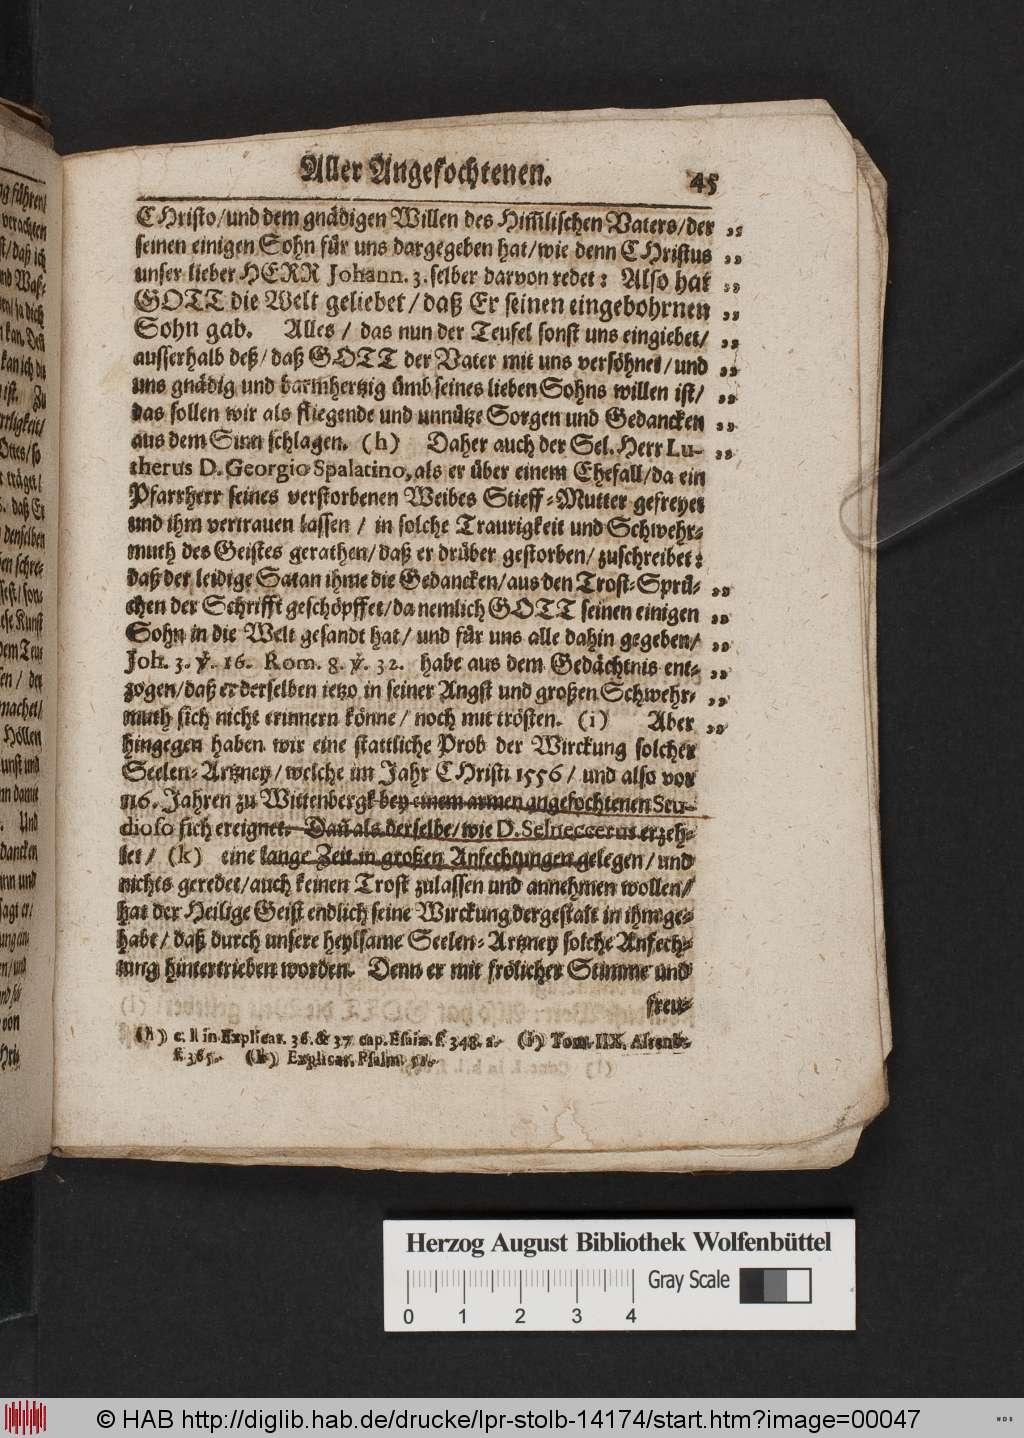 Aller Angefochtenen. 45
CHristo/ und dem gnädigen Willen des Him̃lischen Vaters/ der „
seinen einigen Sohn für uns dargegeben hat/ wie denn CHristus „
unser lieber HERR Johann. 3. selber darvon redet: Also hat „
GOTT die Welt geliebet/ daß Er seinen eingebohrnen „
Sohn gab. Alles/ das nun der Teufel sonst uns eingiebet/ „
ausserhalb deß/ daß GOTT der Vater mit uns versöhnet/ und „
uns gnädig und barmhertzig ümb seines lieben Sohns willen ist/ „
das sollen wir als fliegende und unnütze Sorgen und Gedancken „
aus dem Sinn schlagen. (h) Daher auch der Sel. Herr Lu- „
therus D. Georgio Spalatino, als er über einem Ehefall/ da ein
Pfarrherr seines verstorbenen Weibes Stieff-Mutter gefreyet
und ihm vertrauen lassen/ in solche Traurigkeit und Schwehr-
muth des Geistes gerathen/ daß er drüber gestorben/ zuschreibet:
daß der leidige Satan ihme die Gedancken/ aus den Trost-Sprü- „
chen der Schrifft geschöpffet/ da nemlich GOTT seinen einigen „
Sohn in die Welt gesandt hat/ und für uns alle dahin gegeben/ „
Joh. 3. ℣. 16. Rom. 8. ℣. 32. habe aus dem Gedächtnis ent- „
zogen/ daß er derselben ietzo in seiner Angst und großen Schwehr- „
muth sich nicht erinnern könne/ noch mit trösten. (i) Aber „
hingegen haben wir eine stattliche Prob der Wirckung solcher
Seelen-Artzney/ welche im Jahr CHristi 1556/ und also vor
116. Jahren zu Wittenbergk bey einem armen angefochtenen Stu-
dioso sich ereignet. Dañ als derselbe/ wie D. Selneccerus erzeh-
let/ (k) eine lange Zeit in großen Anfechtungen gelegen/ und
nichts geredet/ auch keinen Trost zulassen und annehmen wollen/
hat der Heilige Geist endlich seine Wirckung dergestalt in ihm ge-
habt/ daß durch unsere heylsame Seelen-Artzney solche Anfech-
tung hintertrieben worden. Denn er mit frölicher Stimme und
freu-
(h) c. l. in Explicat. 36. & 37. cap. Esaiæ. f. 348. a. (i) Tom. IIX. Altenb.
f. 365. (k) Explicat. Psalm. 51.
Herzog August Bibliothek Wolfenbüttel
0 1 2 3 4 Gray Scale
© HAB http://diglib.hab.de/drucke/lpr-stolb-14174/start.htm?image=00047